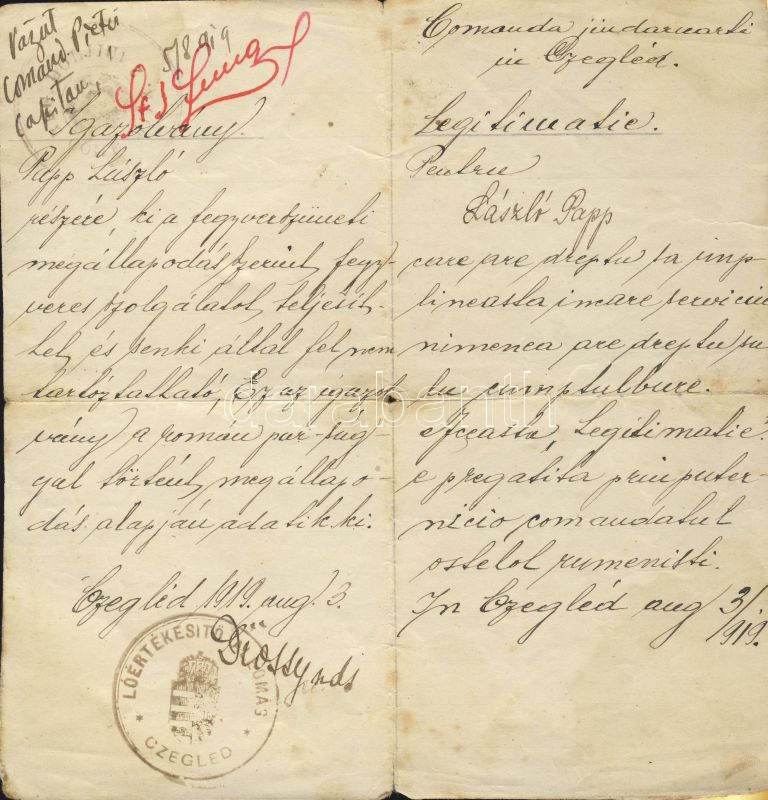 Văzut
Comand Pieței
Capitan
5/8 919
Igazolvány.
Papp László
részére, ki a fegyverszüneti
megállapodás szerint, fegy-
veres szolgálatot, teljesit-
het, és senki által fel nem
tartóztatható, Ez az igazol
vány a román par-ság-
gal történt, megállapo-
dás alapján adatik ki.
Czegléd 1919. aug. 3.
LÓÉRTÉKESÍTŐ
CZEGLÉD
Comanda jindarvarti
in Czegléd.
Legitimatie.
Pentru
László Papp
care are dreptu sa imp-
lineasta imare serviciu
nimenea are dreptu su
lu cumptulbure.
Aceasta, Legitimatie.
e pregatita prin puter-
nicio, comandatul
ostelol rumenisti.
In Czegléd aug 3/
919.
darabanth